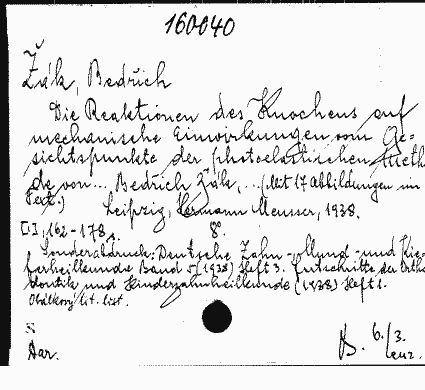 160040
Žák, Bedřich
Die Reaktionen des Knochens auf
mechanische Einwirkungen vom Ge-
sichtspunkte der photoelastischen Meth
de von... Bedřich Žák,... (Mit 17 Abbildungen im
Text.) Leipzig, Hermann Meusser, 1938.
[I], 162-178, 8°.
Sonderabdruck: Deutsche Zahn- Mund- und Kie-
ferheilkunde Band 5 (1938) Heft 3. Fortschritte der Ortho
dontik und Kinderzahnheilkunde (1938) Heft 1.
Obálkový tit. list.
8
Aar.
B. 6./3.